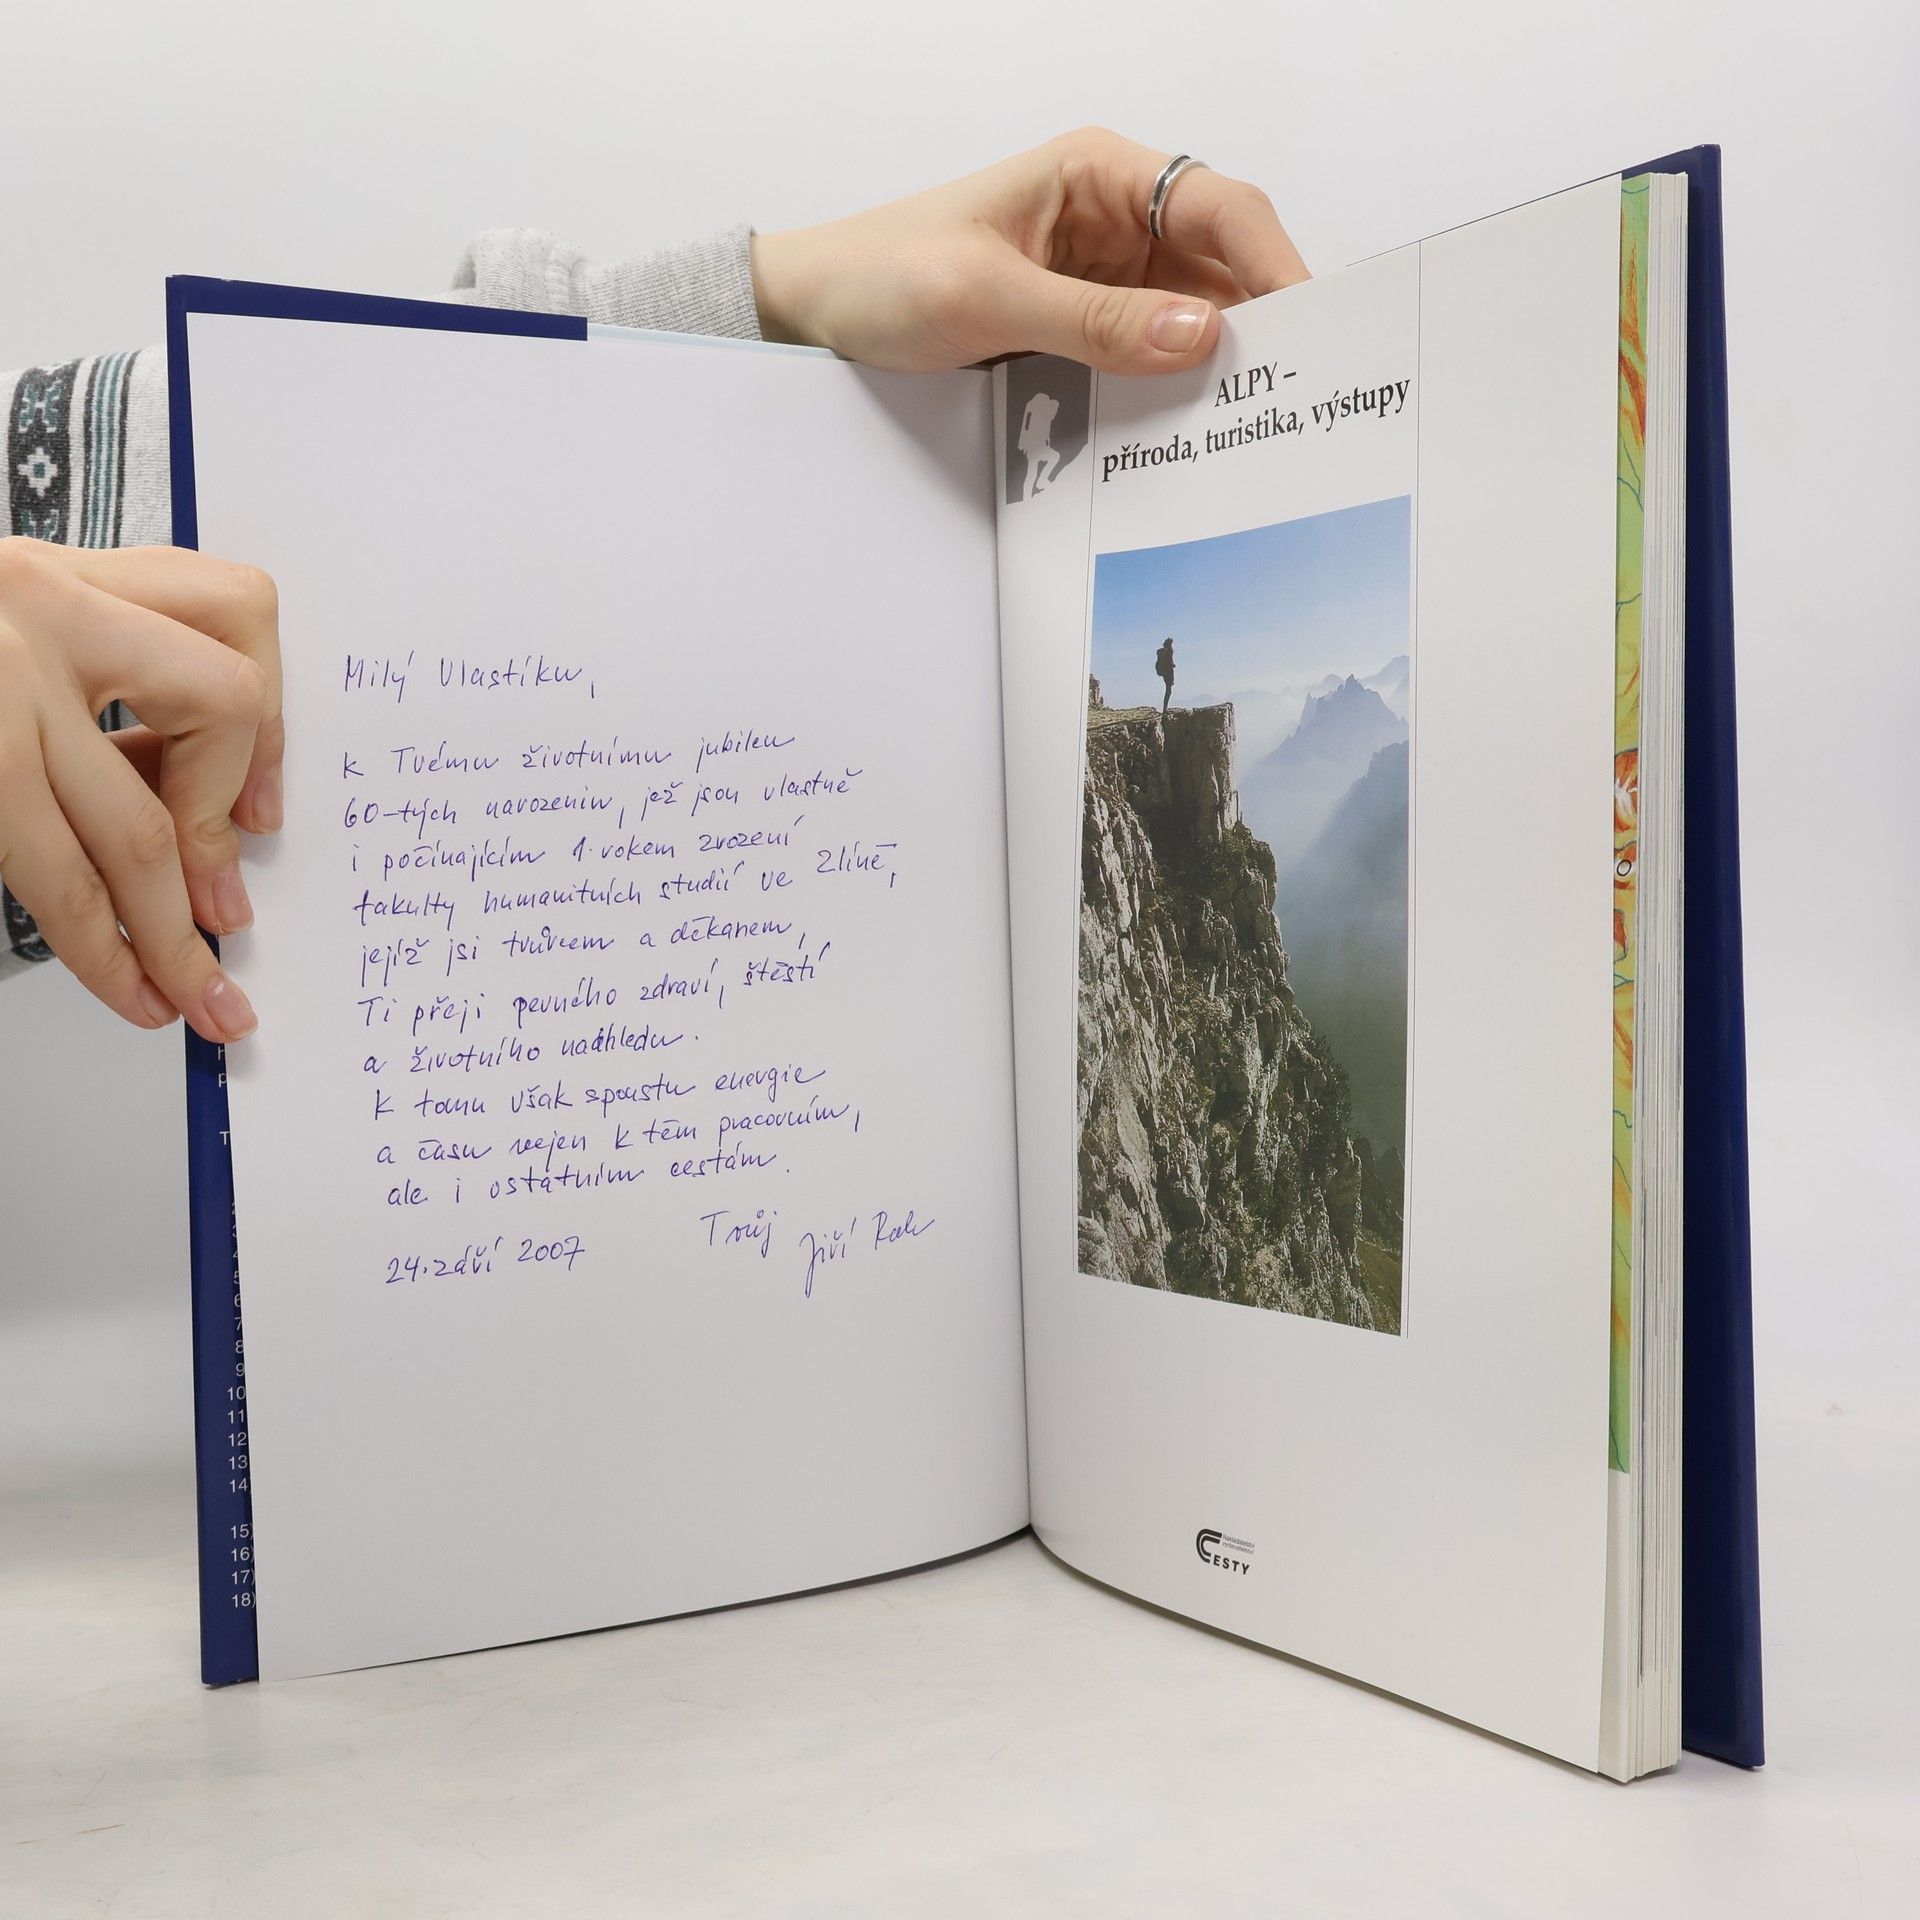 Milý Vlastíku,
k Tvému životnímu jubileu
60-tých narozenin, jež jsou vlastně
i počínajícím 1. rokem zrození
fakulty humanitních studií ve Zlíně,
jejíž jsi tvůrcem a děkanem,
Ti přeji pevného zdraví, štěstí
a životního nadhledu.
K tomu však spoustu energie
a času nejen k těm pracovním,
ale i ostatním cestám.
Tvůj
24. září 2007 Jiří Rak
T
8
9
10
11
12
13
14
15)
16)
17)
18)
ALPY –
příroda, turistika, výstupy
Nakladatelství
vydavatelství
CESTY